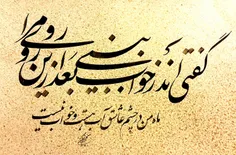 گفتی اندر خواب بینی بعد از این روی مرا
ماه من در چشم عاشق آب هست و خواب نیست